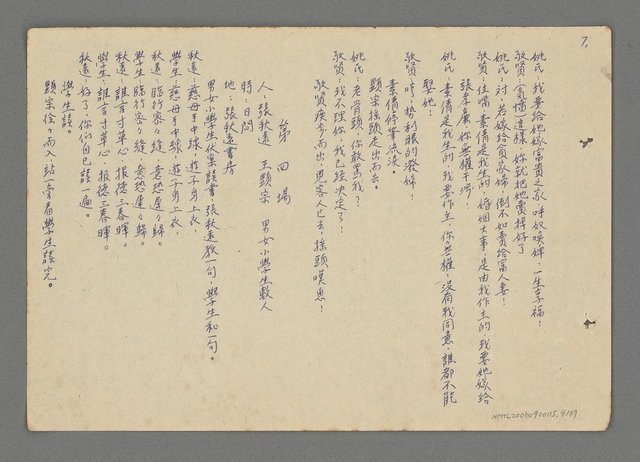 7,
姚氏：我要給她嫁富貴之家，呼奴喚婢，一生享福！
敬賢：（氣憤）這樣，妳就把她賣掉好了
姚氏：對，若嫁給貧家婦，倒不如賣給富人妻！
敬賢：住嘴，素倩是我生的，婚姻大事，是由我作主的，我要她嫁給
張孝廉，你無權干涉！
姚氏：素倩是我生的，我要作主，你無權，沒有我同意，誰都不能
娶她！
敬賢：哼，勢利眼的潑婦！
素倩停筆流淚。
顯宗搖頭走出而去。
姚氏：老骨頭，你敢罵我？
敬賢：我不理妳，我已經決定了！
敬賢疾步而出，見客人已去，搖頭嘆息！
第四場
人：張秋遠　王顯宗　男女小學生數人
時：日間
地：張秋遠書房
男女小學生伏案讀書，張秋遠教一句，學生和一句。
秋遠：慈母手中線，遊子身上衣，
學生：慈母手中線，遊子身上衣，
秋遠：臨行密々縫，意恐遲々歸。
學生：臨行密々縫，意恐遲々歸。
秋遠：誰言寸草心，報德三春暉。
學生：誰言寸草心，報德三春暉。
秋遠：好了，你們自己讀一遍。
學生讀。
顯宗徐々而入，站一旁看學生讀完。
NMTL20060900115, 9/67